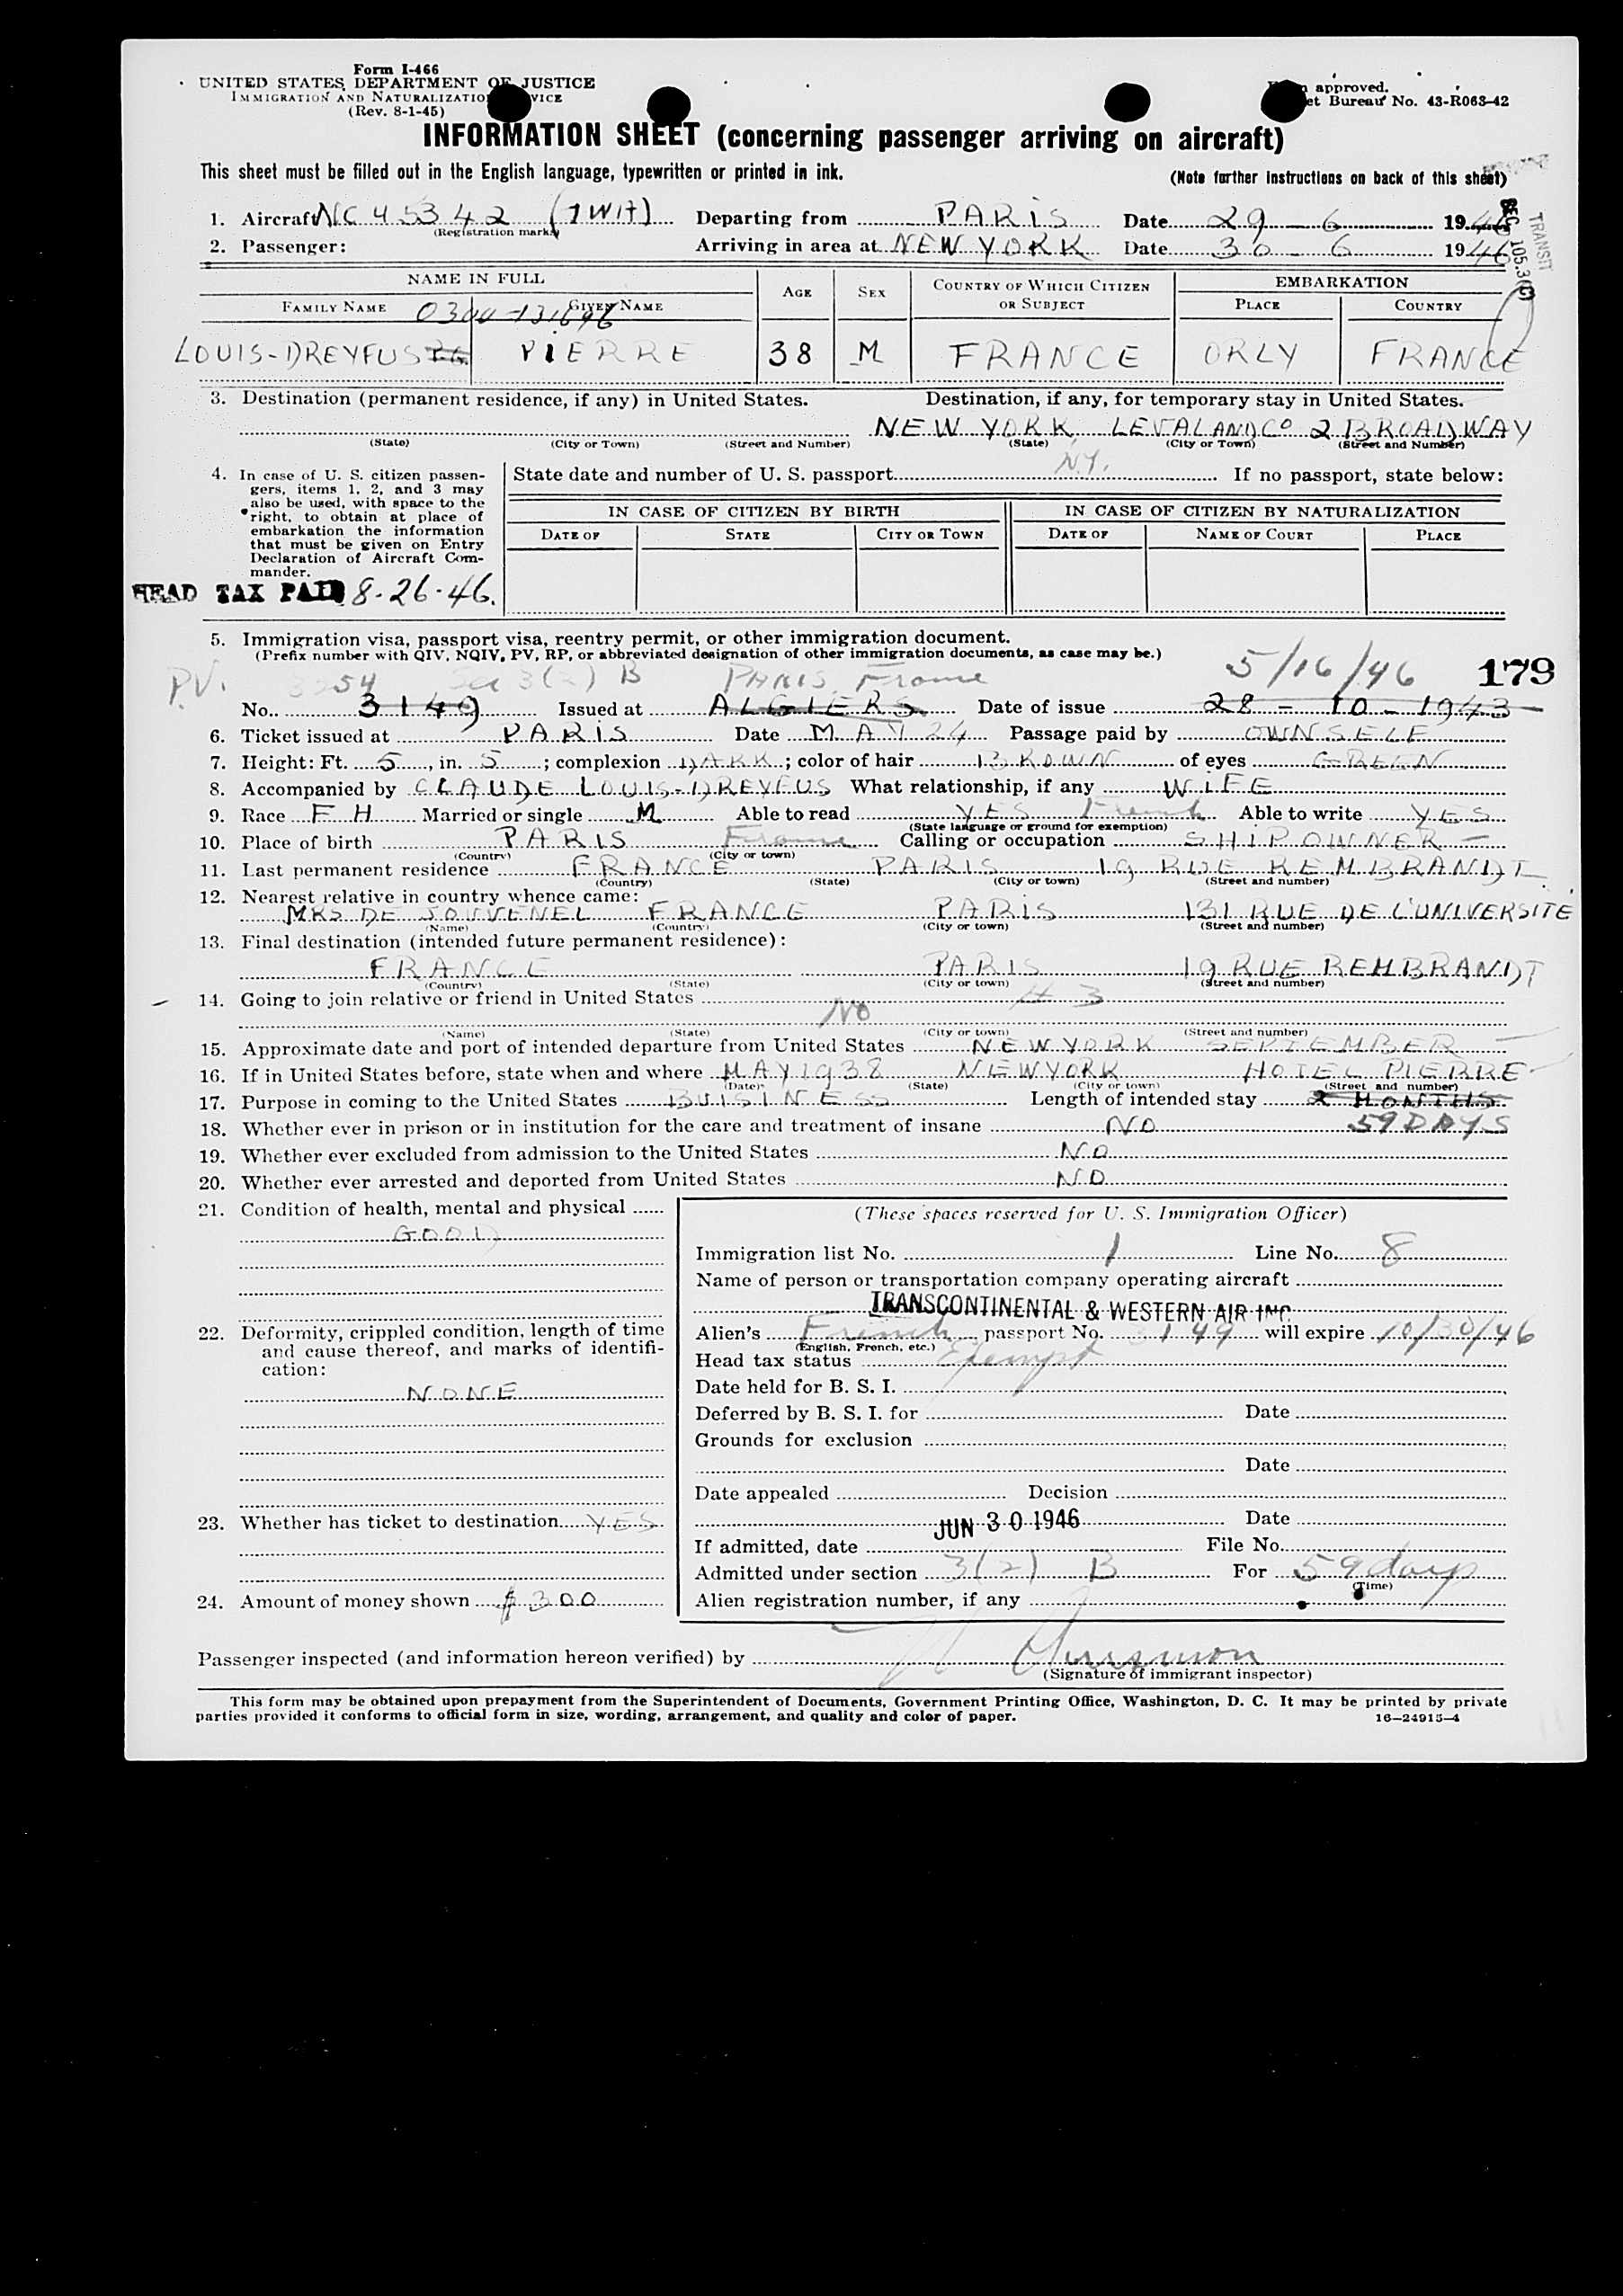 Form I-466
UNITED STATES DEPARTMENT OF JUSTICE
IMMIGRATION AND NATURALIZATION SERVICE
(Rev. 8-1-45)
approved.
Bureau No. 43-R063-42
INFORMATION SHEET (concerning passenger arriving on aircraft)
This sheet must be filled out in the English language, typewritten or printed in ink.
(Note further instructions on back of this sheet)
1. Aircraft NC 45342 (TWA) Departing from PARIS Date 29 - 6 1946
(Registration marks)
2. Passenger: Arriving in area at NEW YORK Date 30 - 6 1946
SEC 105.3(
TRANSIT
NAME IN FULL AGE SEX COUNTRY OF WHICH CITIZEN OR SUBJECT EMBARKATION
FAMILY NAME GIVEN NAME PLACE COUNTRY
0300-131696
LOUIS-DREYFUS PIERRE 38 M FRANCE ORLY FRANCE
3. Destination (permanent residence, if any) in United States. Destination, if any, for temporary stay in United States.
NEW YORK LEVAL AND CO 2 BROADWAY
(State) (City or Town) (Street and Number) (State) (City or Town) (Street and Number)
N.Y.
4. In case of U. S. citizen passengers, items 1, 2, and 3 may also be used, with space to the right, to obtain at place of embarkation the information that must be given on Entry Declaration of Aircraft Commander.
State date and number of U. S. passport If no passport, state below:
IN CASE OF CITIZEN BY BIRTH IN CASE OF CITIZEN BY NATURALIZATION
DATE OF STATE CITY OR TOWN DATE OF NAME OF COURT PLACE
HEAD TAX PAID 8-26-46.
5. Immigration visa, passport visa, reentry permit, or other immigration document.
(Prefix number with QIV, NQIV, PV, RP, or abbreviated designation of other immigration documents, as case may be.)
P.V. 3(2) B PARIS France 5/16/46 179
No. 3149 Issued at ALGIERS Date of issue 28 - 10 - 1943
6. Ticket issued at PARIS Date MAY 24 Passage paid by OWNSELF
7. Height: Ft. 5, in. 5; complexion DARK; color of hair BROWN of eyes GREEN
8. Accompanied by CLAUDE LOUIS-DREYFUS What relationship, if any WIFE
9. Race F H Married or single M Able to read YES French Able to write YES
(State language or ground for exemption)
10. Place of birth PARIS France Calling or occupation SHIPOWNER
(Country) (City or town)
11. Last permanent residence FRANCE PARIS 19 RUE REMBRANDT
(Country) (State) (City or town) (Street and number)
12. Nearest relative in country whence came:
MRS DE JOUVENEL FRANCE PARIS 131 RUE DE L'UNIVERSITE
(Name) (Country) (City or town) (Street and number)
13. Final destination (intended future permanent residence):
FRANCE PARIS 19 RUE REMBRANDT
(Country) (State) (City or town) (Street and number)
14. Going to join relative or friend in United States 43
NO
(Name) (State) (City or town) (Street and number)
15. Approximate date and port of intended departure from United States NEW YORK SEPTEMBER
16. If in United States before, state when and where MAY 1938 NEW YORK HOTEL PIERRE
(Date) (State) (City or town) (Street and number)
17. Purpose in coming to the United States BUISINESS Length of intended stay 2 MONTHS
18. Whether ever in prison or in institution for the care and treatment of insane NO 59 DAYS
19. Whether ever excluded from admission to the United States NO
20. Whether ever arrested and deported from United States NO
21. Condition of health, mental and physical
GOOD
22. Deformity, crippled condition, length of time and cause thereof, and marks of identification:
NONE
23. Whether has ticket to destination YES
24. Amount of money shown $ 300
(These spaces reserved for U. S. Immigration Officer)
Immigration list No. 1 Line No. 8
Name of person or transportation company operating aircraft
TRANSCONTINENTAL & WESTERN AIR INC.
Alien's French passport No. 3149 will expire 10/30/46
(English, French, etc.)
Head tax status Exempt
Date held for B. S. I.
Deferred by B. S. I. for Date
Grounds for exclusion
Date
Date appealed Decision
JUN 30 1946 Date
If admitted, date File No.
Admitted under section 3(2) B For 59 days
(Time)
Alien registration number, if any
Passenger inspected (and information hereon verified) by
(Signature of immigrant inspector)
This form may be obtained upon prepayment from the Superintendent of Documents, Government Printing Office, Washington, D. C. It may be printed by private
parties provided it conforms to official form in size, wording, arrangement, and quality and color of paper.
16—24915-4